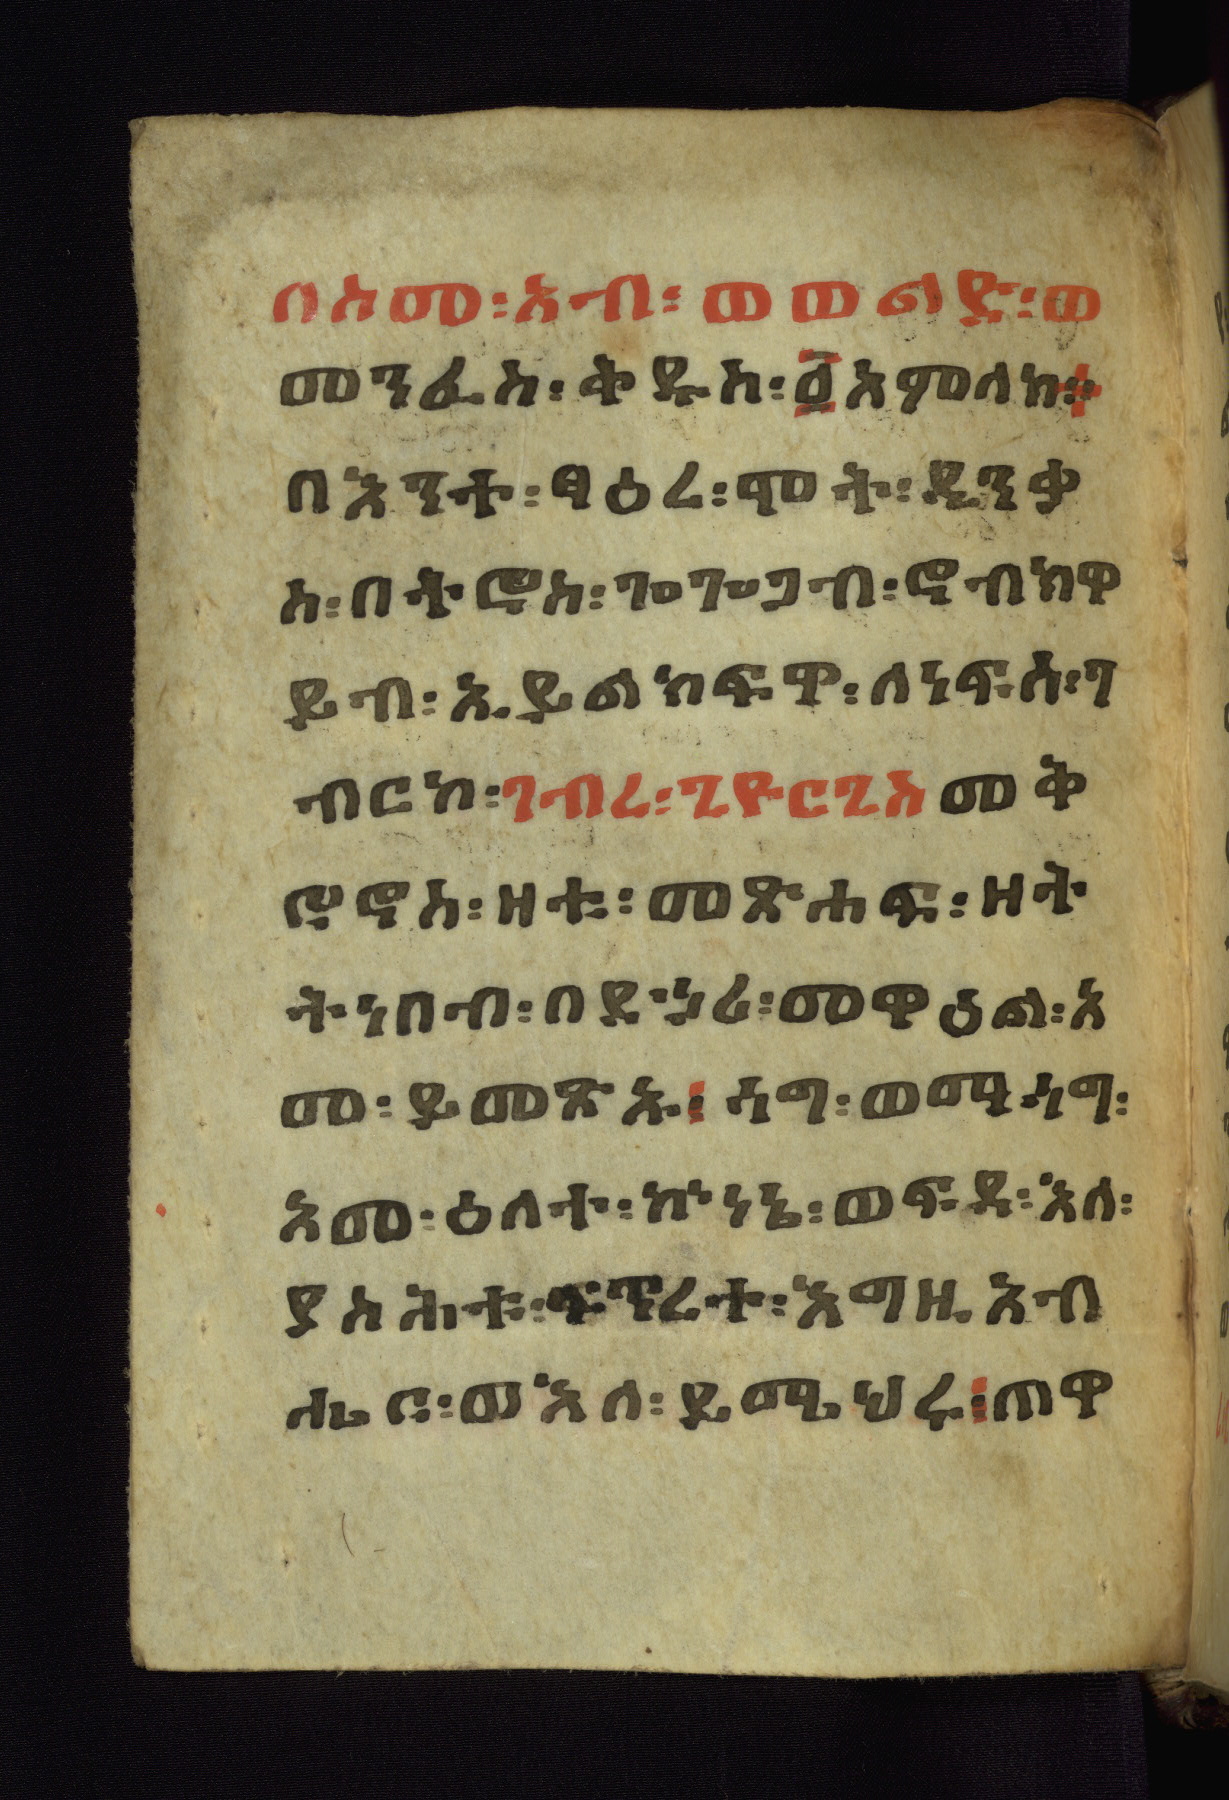 በስመ፡አብ፡ወወልድ፡ወ
መንፈስ፡ቅዱስ፡፩አምላክ።
በእንተ፡ፃዕረ፡ሞት፡ዲንቃ
ስ፡በትሮስ፡ጐጐጋብ፡ኖብክዋ
ይብ፡ኢይልከፍዋ፡ለነፍስ፡ገ
ብርከ፡ገብረ፡ጊዮርጊስ መቅ
ሮኖስ፡ዛቲ፡መጽሐፍ፡ዘት
ትነበብ፡በደኃሪ፡መዋዕል፡አ
መ፡ይመጽኡ፡ሓግ፡ወማሓግ፡
አመ፡ዕለተ፡ኵነኔ፡ወፍዳ፡እለ፡
ያስሕቱ፡ፍጥረተ፡እግዚአብ
ሔር፡ወእለ፡ይሜህሩ፡ጠዋ